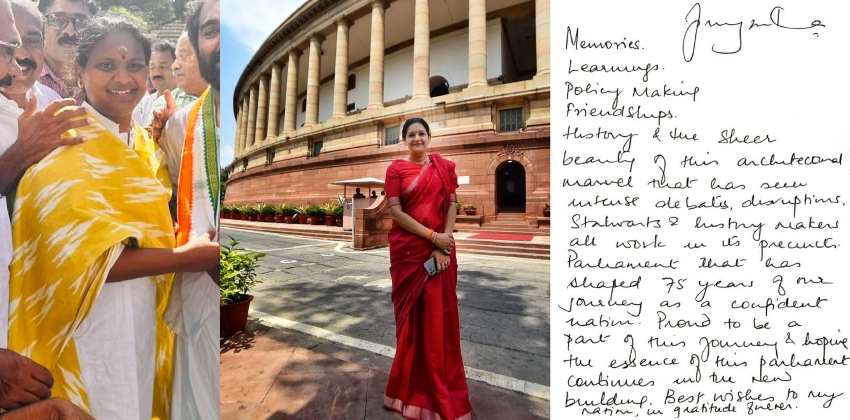 Memories.
Learnings.
Policy Making
Friendships.
History & the sheer
beauty of this architectural
marvel that has seen
intense debates, disruptions,
Stalwarts & history makers
all work in its precincts.
Parliament that has
shaped 75 years of our
journey as a confident
nation. Proud to be a
part of this journey & hoping
the essence of this parliament
continues in the new
building. Best wishes to my
nation, in gratitude forever.